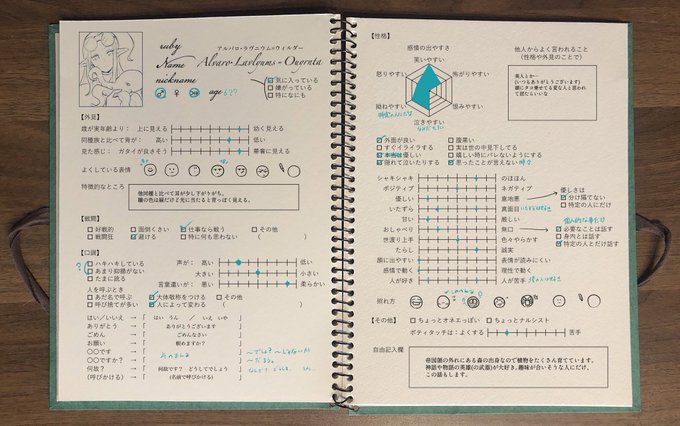 ruby
アルバロ・ラヴニウム=ウィルダー
Name
nickname
age
気に入っている
嫌がっている
特になにも
【外見】
歳が実年齢より：
上に見える
幼く見える
同種族と比べて背が：
高い
低い
見た感じ：
ガタイが良さそう
華奢に見える
よくしている表情
特徴的なところ
他同種と比べて耳が少し下がりがち。
瞳の色は緑だけど光に当たると青っぽく見える。
【戦闘】
好戦的
面倒くさい
仕事なら戦う
その他
戦闘狂
避ける
特に何も思わない
【口調】
ハキハキしている
あまり抑揚がない
たまに訛る
声が：
高い
低い
大きい
小さい
言葉遣いが：
悪い
柔らかい
人を呼ぶとき
あだ名で呼ぶ
大体敬称をつける
その他
呼び捨てが多い
人によって変わる
はい／いいえ → 「 はい うん ／ いえ いや 」
ありがとう → 「 ありがとうございます 」
ごめん → 「 ごめんなさい 」
お願い → 「 頼めますか？ 」
〇〇です → 「
〇〇ですか？ → 「
何故？ → 「 何故です？ どうしてでしょう 」
(呼びかける) → 「 (名前で呼びかける) 」
【性格】
感情の出やすさ
笑いやすい
怒りやすい
怖がりやすい
拗ねやすい
恨みやすい
泣きやすい
他人からよく言われること
(性格や外見のことで)
美人とか…
(いつもありがとうございます)
頭にタコ乗せてる変な人と思われ
て居たらいいな
外面が良い
腹黒い
すぐイライラする
実は世の中見下してる
本当は優しい
嬉しい時にバレないようにする
隠れて泣いたりする
思ったことが言えない
シャキシャキ
のほほん
ポジティブ
ネガティブ
優しい
意地悪
いたずら
真面目
甘い
厳しい
おしゃべり
無口
世渡り上手
色々やらかす
たらし
誠実
顔に出やすい
表情が読みにくい
感情で動く
理性で動く
人が好き
人が苦手
優しさは
分け隔てない
特定の人にだけ
必要なことは話す
身内とは話す
特定の人とだけ話す
照れ方
【その他】
ちょっとオネエっぽい
ちょっとナルシスト
ボティタッチは：よくする
苦手
自由記入欄
帝国領の外れにある森の出身なので植物をたくさん育てています。
神話や物語の英雄(の武器)が大好き、趣味が合いそうな人にだけ、
この話もします。